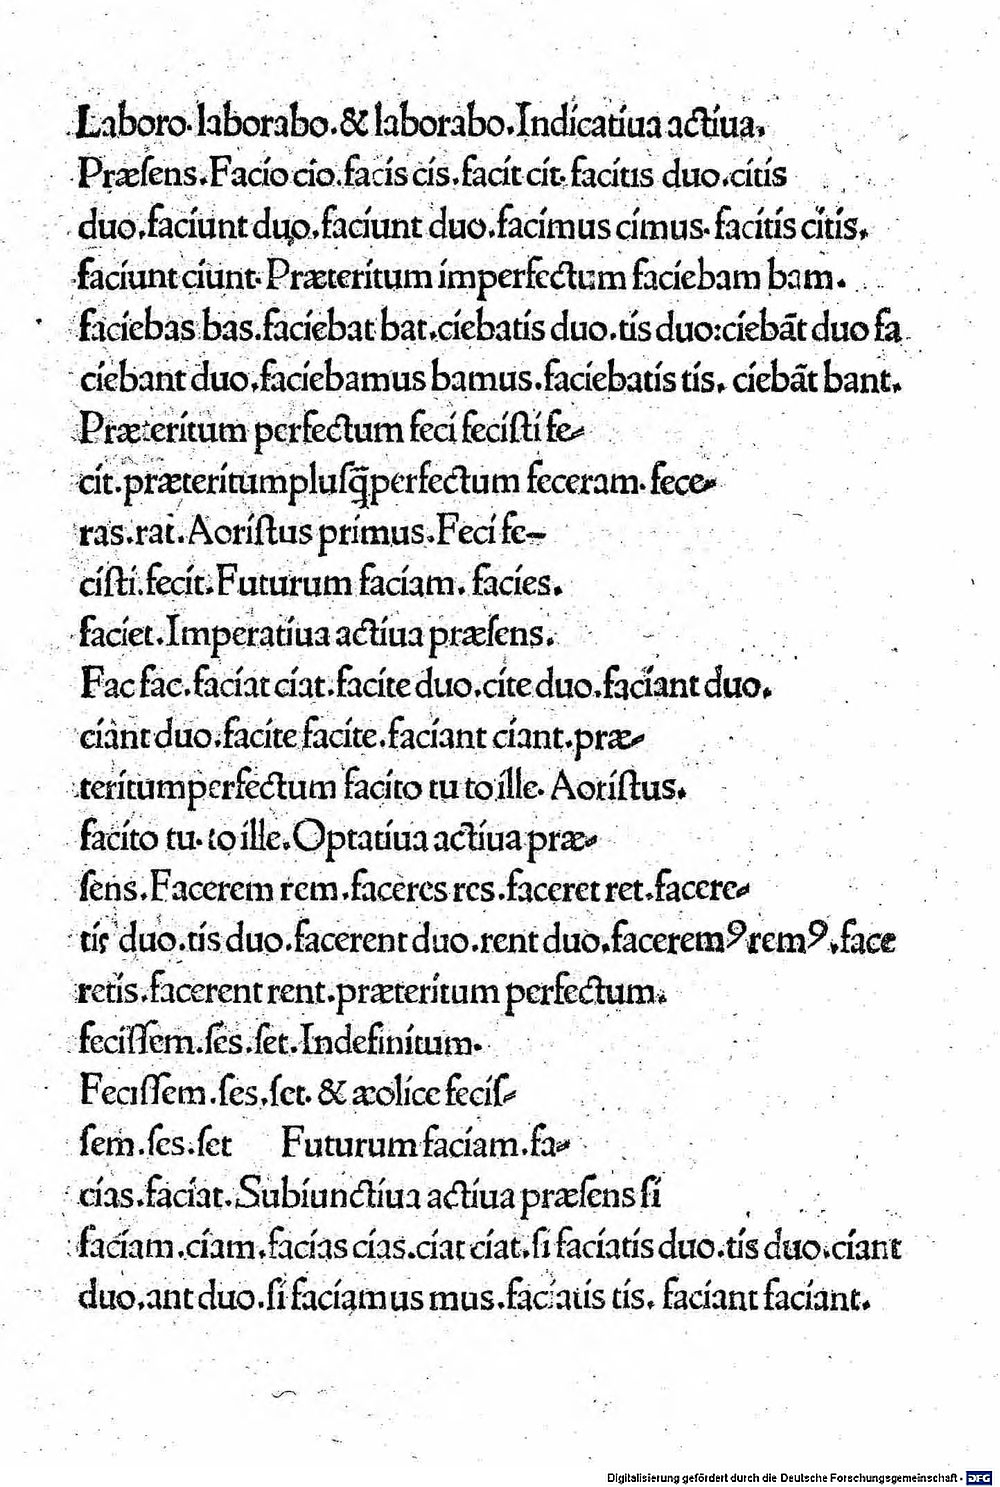 Laboro. laborabo. & laborabo. Indicatiua actiua.
Præſens. Facio cio. facis cis. facit cit. facitis duo. citis
duo. faciunt duo. faciunt duo. facimus cimus. facitis citis.
faciunt ciunt. Præteritum imperfectum faciebam bam.
faciebas bas. faciebat bat. ciebatis duo. tis duo: ciebãt duo fa
ciebant duo. faciebamus bamus. faciebatis tis. ciebãt bant.
Præteritum perfectum feci feciſti fe-
cit. præteritumpluſq̃perfectum feceram. fece-
ras. rat. Aoriſtus primus. Feci fe-
ciſti. fecit. Futurum faciam. facies.
faciet. Imperatiua actiua præſens.
Fac fac. faciat ciat. facite duo. cite duo. faciant duo.
ciant duo. facite facite. faciant ciant. præ-
teritumperfectum facito tu to ille. Aoriſtus.
facito tu. to ille. Optatiua actiua præ-
ſens. Facerem rem. faceres res. faceret ret. facere-
tis duo. tis duo. facerent duo. rent duo. faceremꝰ remꝰ. face
retis. facerent rent. præteritum perfectum.
feciſſem. ſes. ſet. Indefinitum.
Feciſſem. ſes. ſet. & æolice feciſ-
ſem. ſes. ſet Futurum faciam. fa-
cias. faciat. Subiunctiua actiua præſens ſi
faciam. ciam. facias cias. ciat ciat. ſi faciatis duo. tis duo. ciant
duo. ant duo. ſi faciamus mus. faciatis tis. faciant faciant.
Digitalisierung gefördert durch die Deutsche Forschungsgemeinschaft - DFG